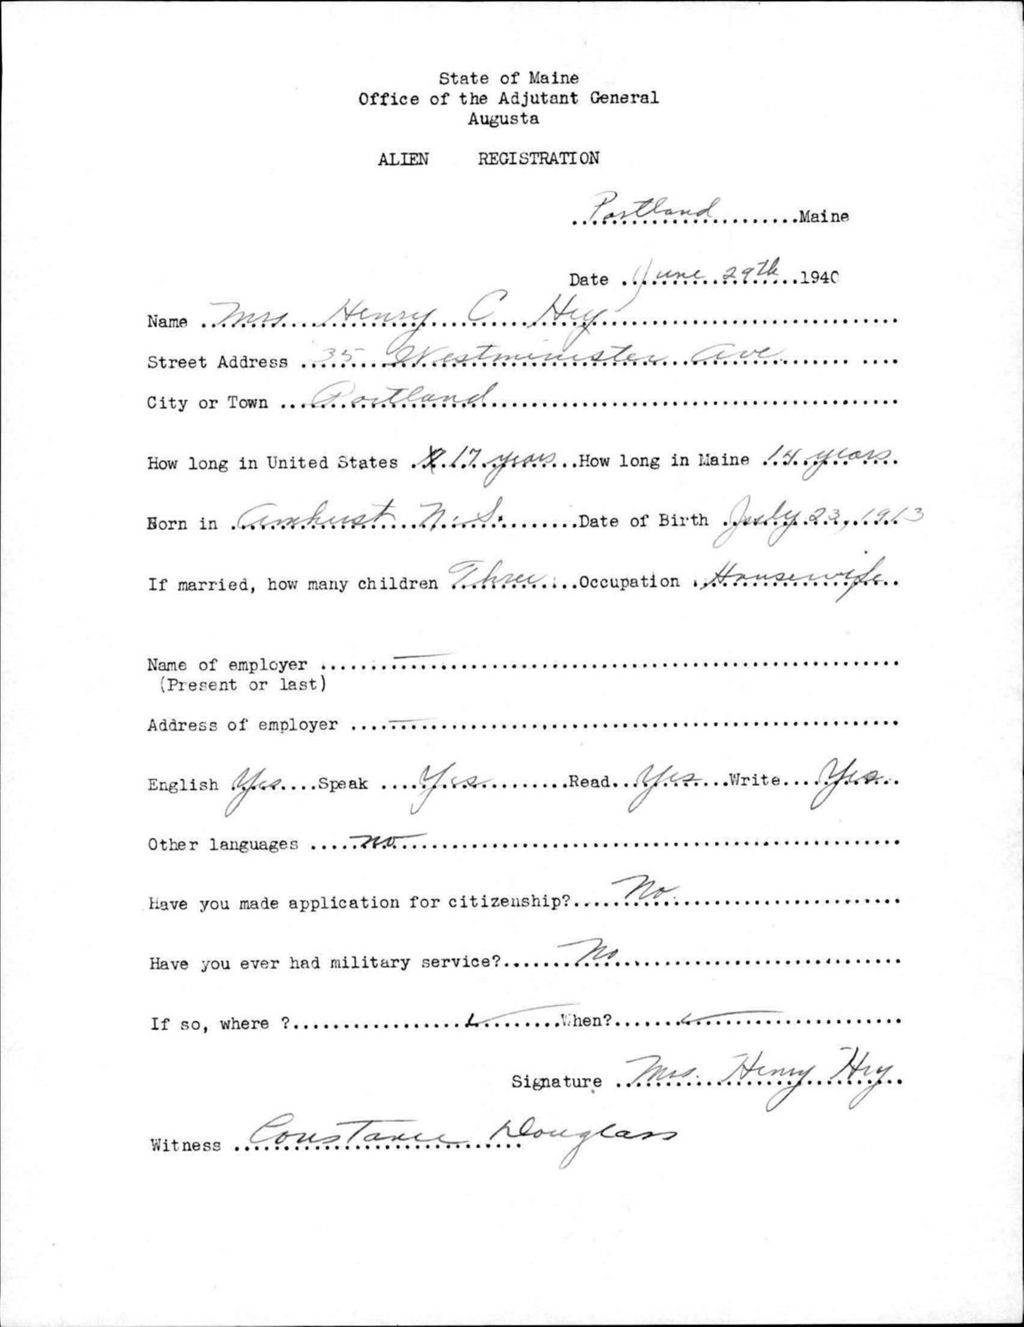 State of Maine
Office of the Adjutant General
Augusta
ALIEN REGISTRATION
Portland Maine
Date June 29th 1940
Name Mrs Henry C Hey
Street Address 35 Westminister Ave
City or Town Portland
How long in United States 17 years How long in Maine 14 years
Born in Amhurst N.S. Date of Birth July 23, 1913
If married, how many children Three Occupation Housewife
Name of employer
(Present or last)
Address of employer
English Yes Speak Yes Read Yes Write Yes
Other languages no
Have you made application for citizenship? No
Have you ever had military service? No
If so, where ? When?
Signature Mrs. Henry Hey
Witness Constance Douglass